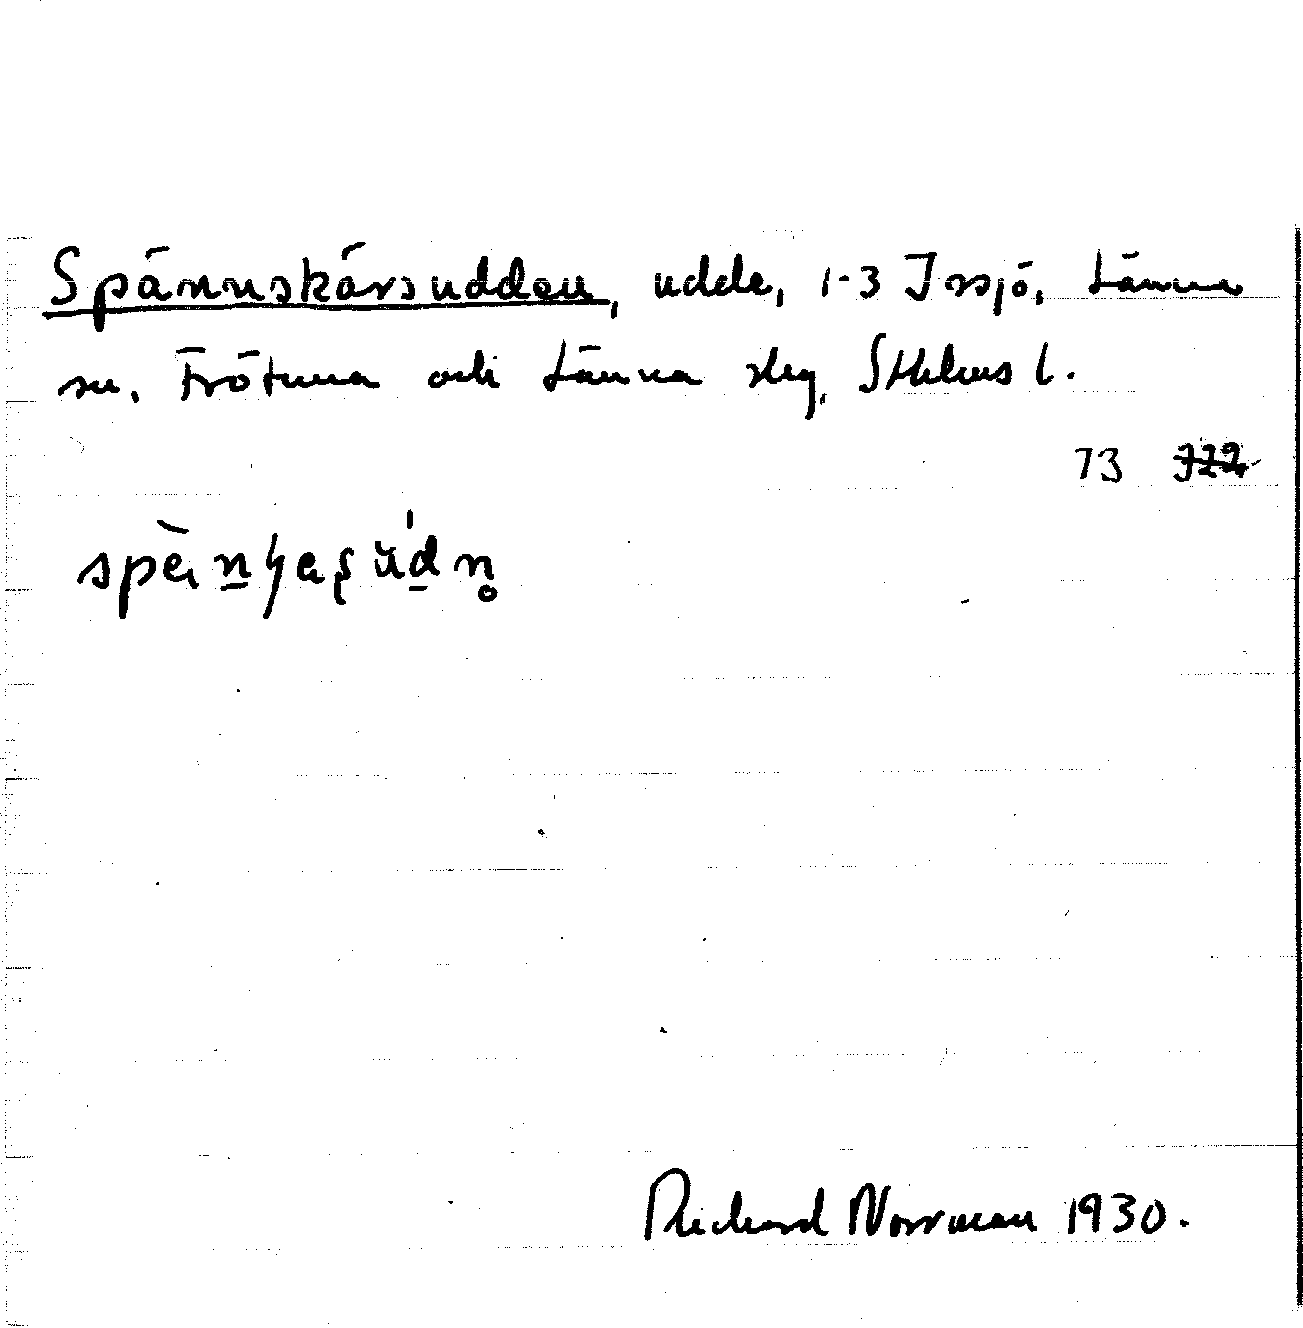 Spännskärsudden, udde, 1-3 Issjö, Länna
sn. Frötuna och Länna slg, Sthlms l.
73
Richard Norrman 1930.